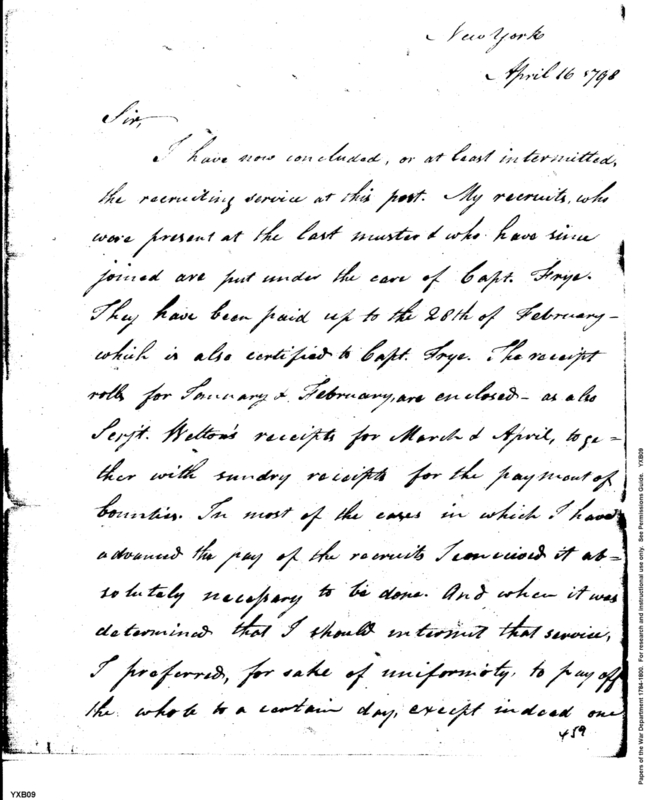 New York
April 16 1798
Sir,
I have now concluded, or at least intermitted,
the recruiting service at this post. My recruits, who
were present at the last muster & who have since
joined are put under the care of Capt. Frye.
They have been paid up to the 28th of February -
which is also certified to Capt. Frye. The receipt
rolls for January & February, are enclosed - as also
Serjt. Welton's receipts for March & April, toge=
ther with sundry receipts for the payment of
bounties. In most of the cases in which I have
advanced the pay of the recruits I conceived it ab=
solutely necessary to be done. And when it was
determined that I should intermit that service,
I preferred, for sake of uniformity, to pay off
the whole to a certain day, except indeed one
459
YXB09
Papers of the War Department 1784-1800. For research and instructional use only. See Permissions Guide. YXB09